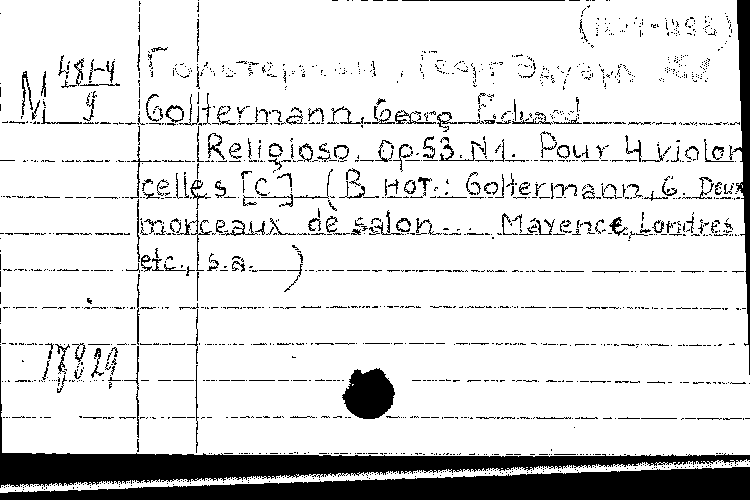 (1824-1898)
М 481-4/9 Гольтерман, Георг Эдуард
Goltermann, Georg Eduard
Religioso. Op.53. N1. Pour 4 violon
celles [C] (В нот.: Goltermann, G. Deux
morceaux de salon... Mayence, Londres
etc., s.a. )
17829